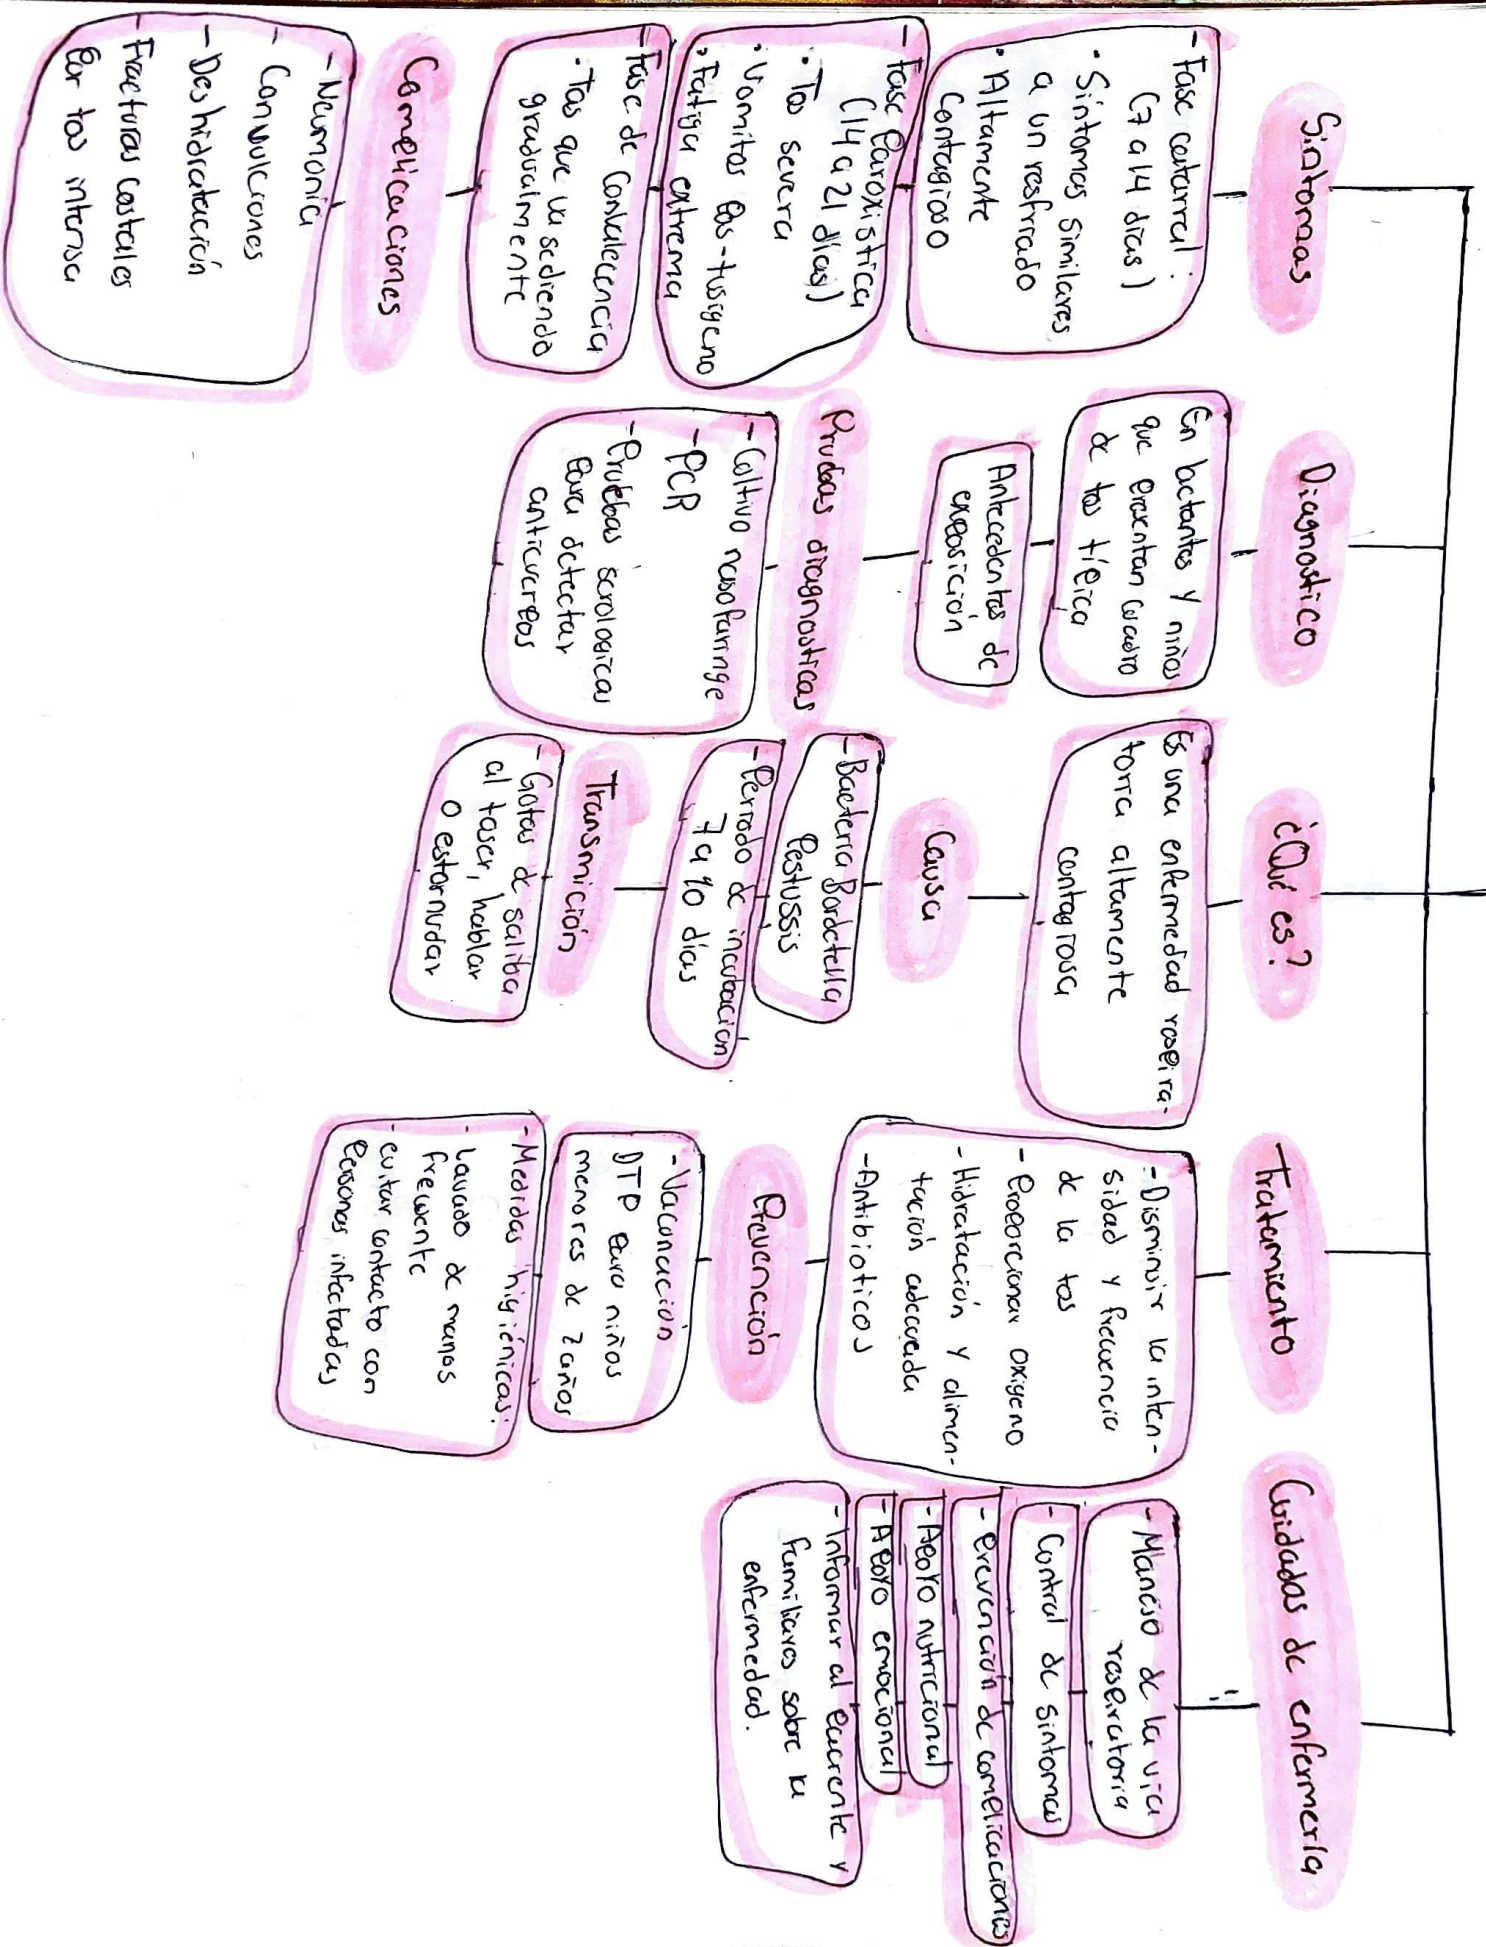 Sintomas
- Fase catarral:
(7 a 14 días)
• Sintomas similares
a un resfriado
• Altamente
Contagioso
- Fase Paroxistica
(14 a 21 días)
• Tos severa
• Vomitos Pos-tusigeno
• Fatiga extrema
- Fase de Convalecencia
• Tos que va sediendo
gradualmente
Complicaciones
- Neumonia
- Convulciones
- Deshidratación
- Fracturas costales
Por tos intensa
Diagnostico
En lactantes y niños
que presentan cuadro
de tos típica
Antecedentes de
exposición
Pruebas diagnosticas
- Coltivo nasofaringe
- PCR
- Pruebas serologicas
Para detectar
anticuerpos
¿Qué es?
Es una enfermedad respira-
toria altamente
contagiosa
Causa
- Bacteria Bordetella
Pestussis
- Periodo de incubación
7 a 10 días
Transmición
- Gotas de saliba
al toser, hablar
o estornudar
Tratamiento
- Disminuir la inten-
sidad y frecuencia
de la tos
- Proporcionar oxigeno
- Hidratación y alimen-
tación adecuada
- Antibioticos
Prevención
- Vacunación
DTP para niños
menores de 2 años
- Medidas higiénicas:
- Lavado de manos
frecuente
- evitar contacto con
Personas infectadas
Cuidados de enfermería
- Manejo de la via
respiratoria
- Control de sintomas
- Prevención de complicaciones
- Apoyo nutricional
- Apoyo emocional
- Informar al paciente y
familiares sobre la
enfermedad.